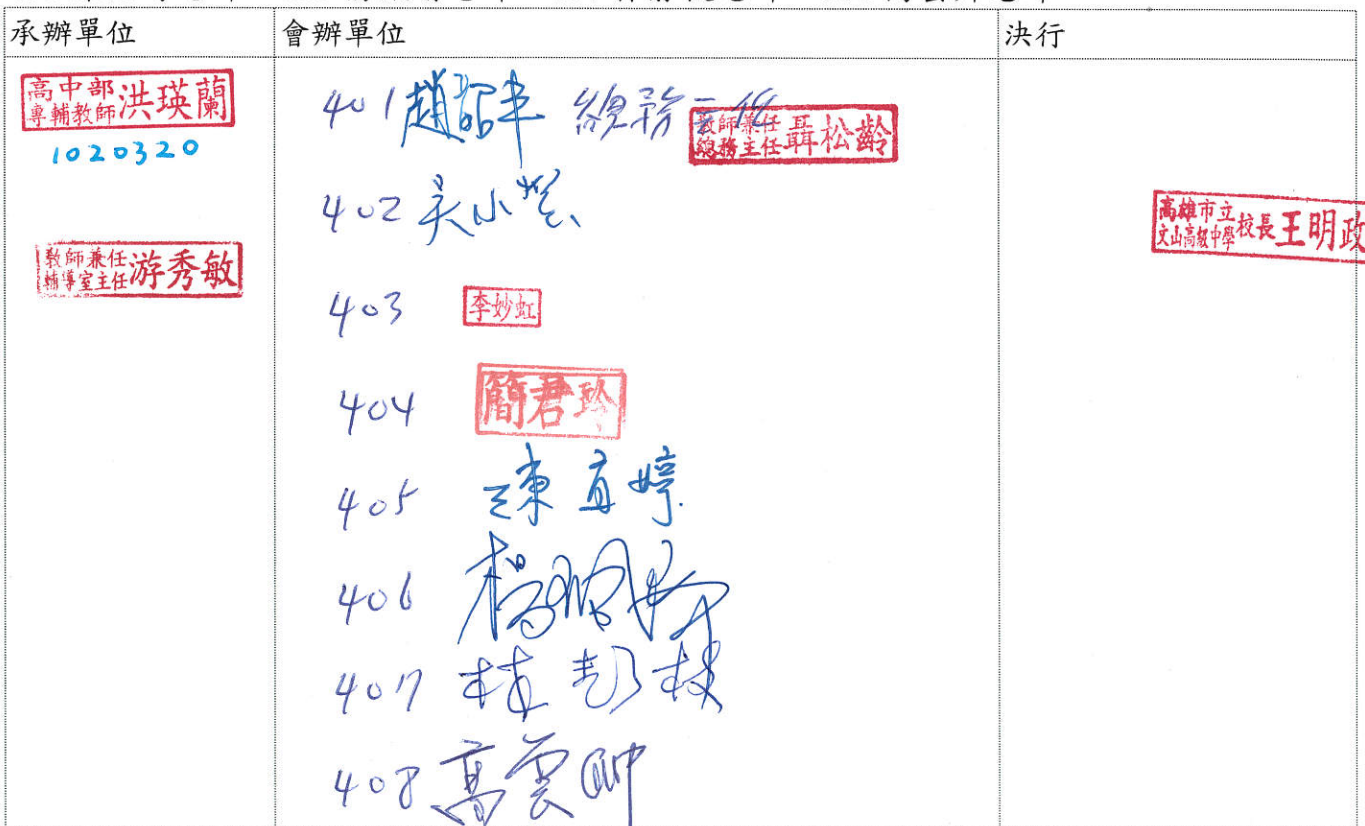 承辦單位
會辦單位
決行
高中部
專輔教師 洪瑛蘭
1020320
教師兼任
輔導室主任 游秀敏
401 趙
總務主任
教師兼任
總務主任 聶松齡
402 吳小
403 李妙虹
404 簡君玲
405 陳宜婷
406 楊
407 林彭
408 高雲
高雄市立
文山高級中學 校長 王明政